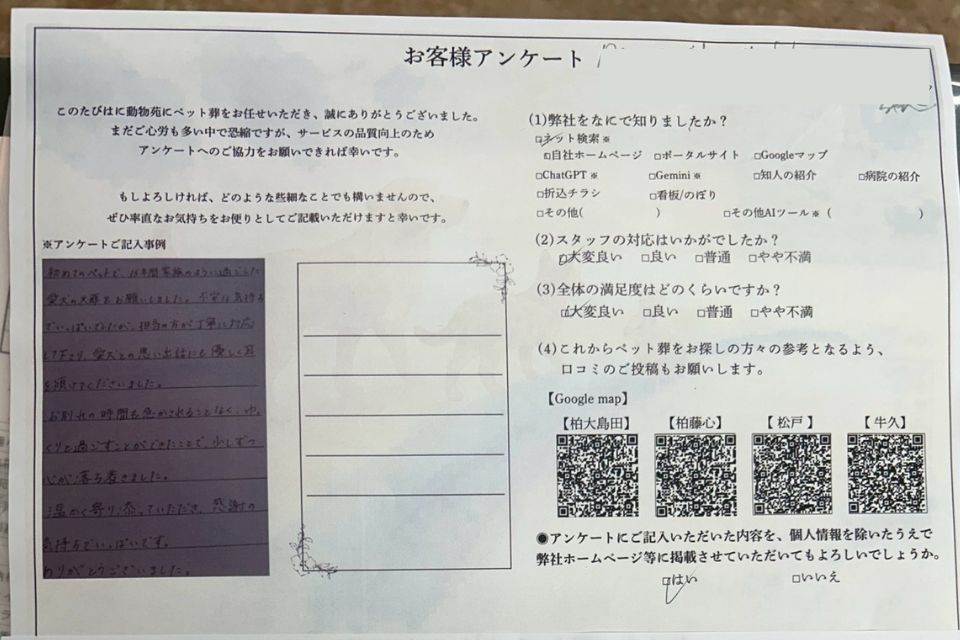 お客様アンケート
このたびはに動物苑にペット葬をお任せいただき、誠にありがとうございました。
まだご心労も多い中で恐縮ですが、サービスの品質向上のため
アンケートへのご協力をお願いできれば幸いです。
もしよろしければ、どのような些細なことでも構いませんので、
ぜひ率直なお気持ちをお便りとしてご記載いただけますと幸いです。
※アンケートご記入事例
初めてのペットで、15年間家族のように過ごした
愛犬の火葬をお願いしました。不安な気持ち
でいっぱいでしたが、担当の方が丁寧に対応
して下さり、愛犬との思い出話にも優しく耳
を傾けてくださいました。
お別れの時間も急かされることなく、ゆっ
くりと過ごすことができたことで、少しずつ
心が落ち着きました。
温かく寄り添っていただき、感謝の
気持ちでいっぱいです。
ありがとうございました。
(1)弊社をなにで知りましたか？
□ネット検索※
□自社ホームページ □ポータルサイト □Googleマップ
□ChatGPT※ □Gemini※ □知人の紹介 □病院の紹介
□折込チラシ □看板/のぼり
□その他( ) □その他AIツール※ ( )
(2)スタッフの対応はいかがでしたか？
□大変良い □良い □普通 □やや不満
(3)全体の満足度はどのくらいですか？
□大変良い □良い □普通 □やや不満
(4)これからペット葬をお探しの方々の参考となるよう、
口コミのご投稿もお願いします。
【Google map】
【柏大島田】 【柏藤心】 【 松戸 】 【 牛久 】
●アンケートにご記入いただいた内容を、個人情報を除いたうえで
弊社ホームページ等に掲載させていただいてもよろしいでしょうか。
□はい □いいえ